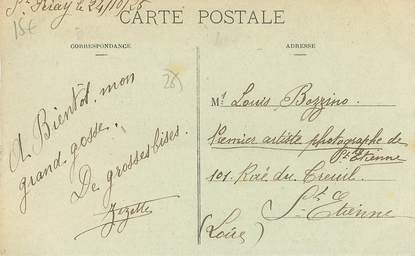 St Péray le 24/10/25
15€
CARTE POSTALE
CORRESPONDANCE
ADRESSE
A Bientôt, mon
grand gosse.
De grosses bises.
Zizette
Mr Louis Bozzino.
Premier artiste photographe de
St Etienne
101 Rue du Treuil
St Etienne
(Loire)